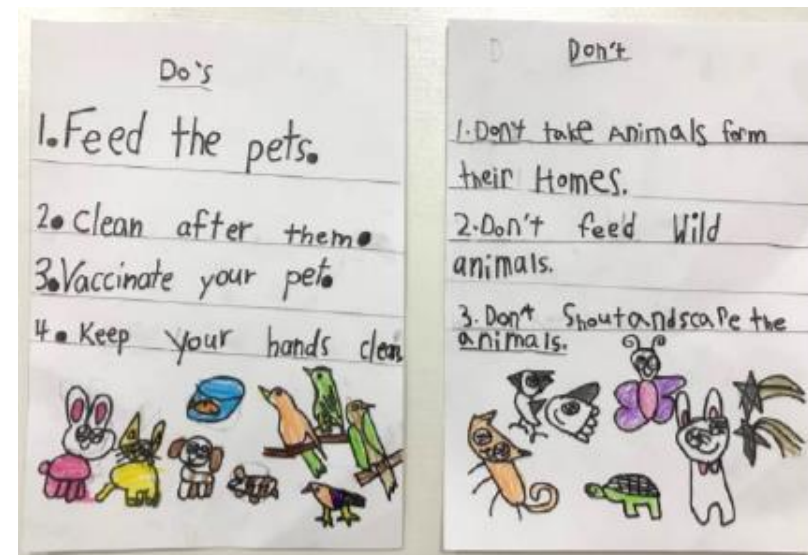 Do's
1. Feed the pets.
2. Clean after them.
3. Vaccinate your pet.
4. Keep your hands clean
Don't
1. Don't take Animals form
their Homes.
2. Don't feed Wild
animals.
3. Don't Shout and scare the
animals.